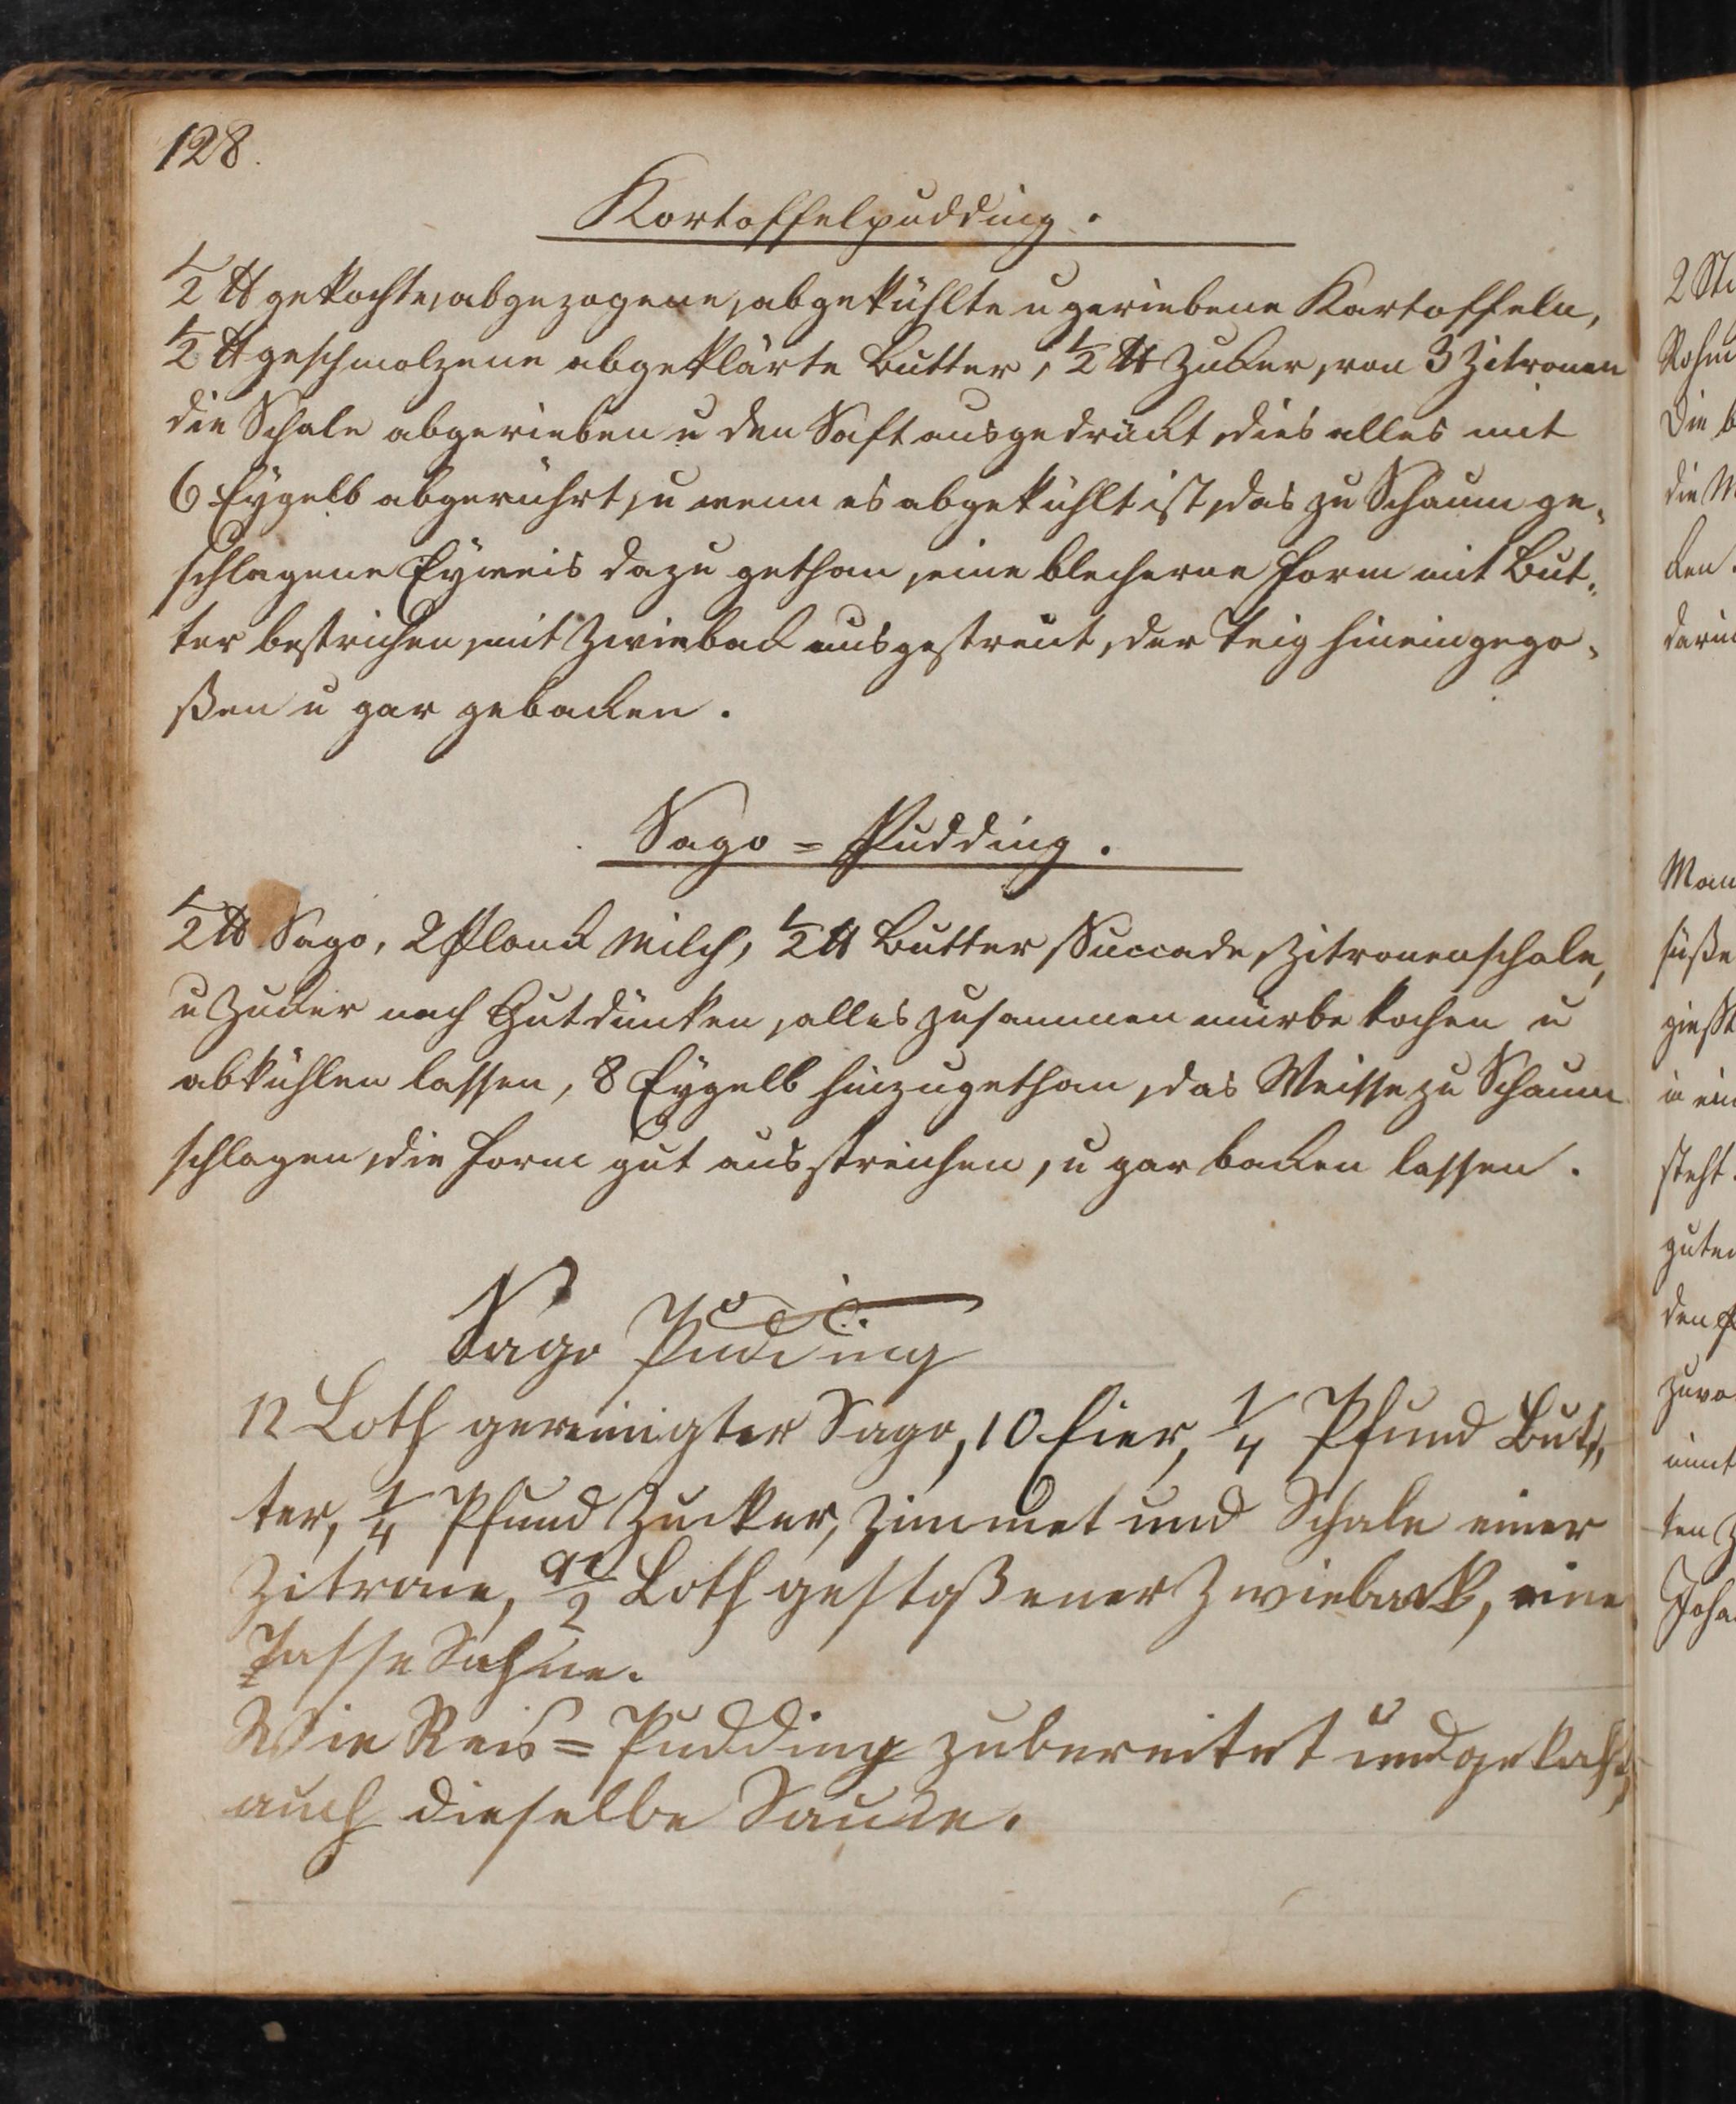 128.
Kartoffelpudding.
½ ℔ gekochte, abgezogene, abgekühlte u geriebene Kartoffeln,
½ ℔ geschmolzene abgeklärte Butter, ½ ℔ Zucker, von 3 Zitronen
die Schale abgerieben u den Saft ausgedrückt, dies alles mit
6 Eygelb abgerührt, u wenn es abgekühlt ist, das zu Schaum ge-
schlagene Eyweis dazu gethan, eine blecherne Form mit But-
ter bestrichen, mit Zwieback ausgestreut, der Teig hineingego-
ßen u gar gebacken.
Sago = Pudding.
½ ℔ Sago, 2 Planck Milch, ½ ℔ Butter, Succade, Zitronenschale,
u Zucker nach Gutdünken, alles zusammen mürbe kochen u
abkühlen lassen, 8 Eygelb hinzugethan, das Weisse zu Schaum
schlagen, die Form gut ausstreichen, u gar backen lassen.
Sago Pudding
12 Loth gereinigter Sago, 10 Eier, ¼ Pfund But-
ter, ¼ Pfund Zucker, Zimmet und Schale einer
Zitrone, Loth gestoßener Zwieback, eine
Tasse Sahne.
Wie Reis = Pudding zubereitet und gekocht,
auch dieselbe Sauce.
2
die
süße
steht.